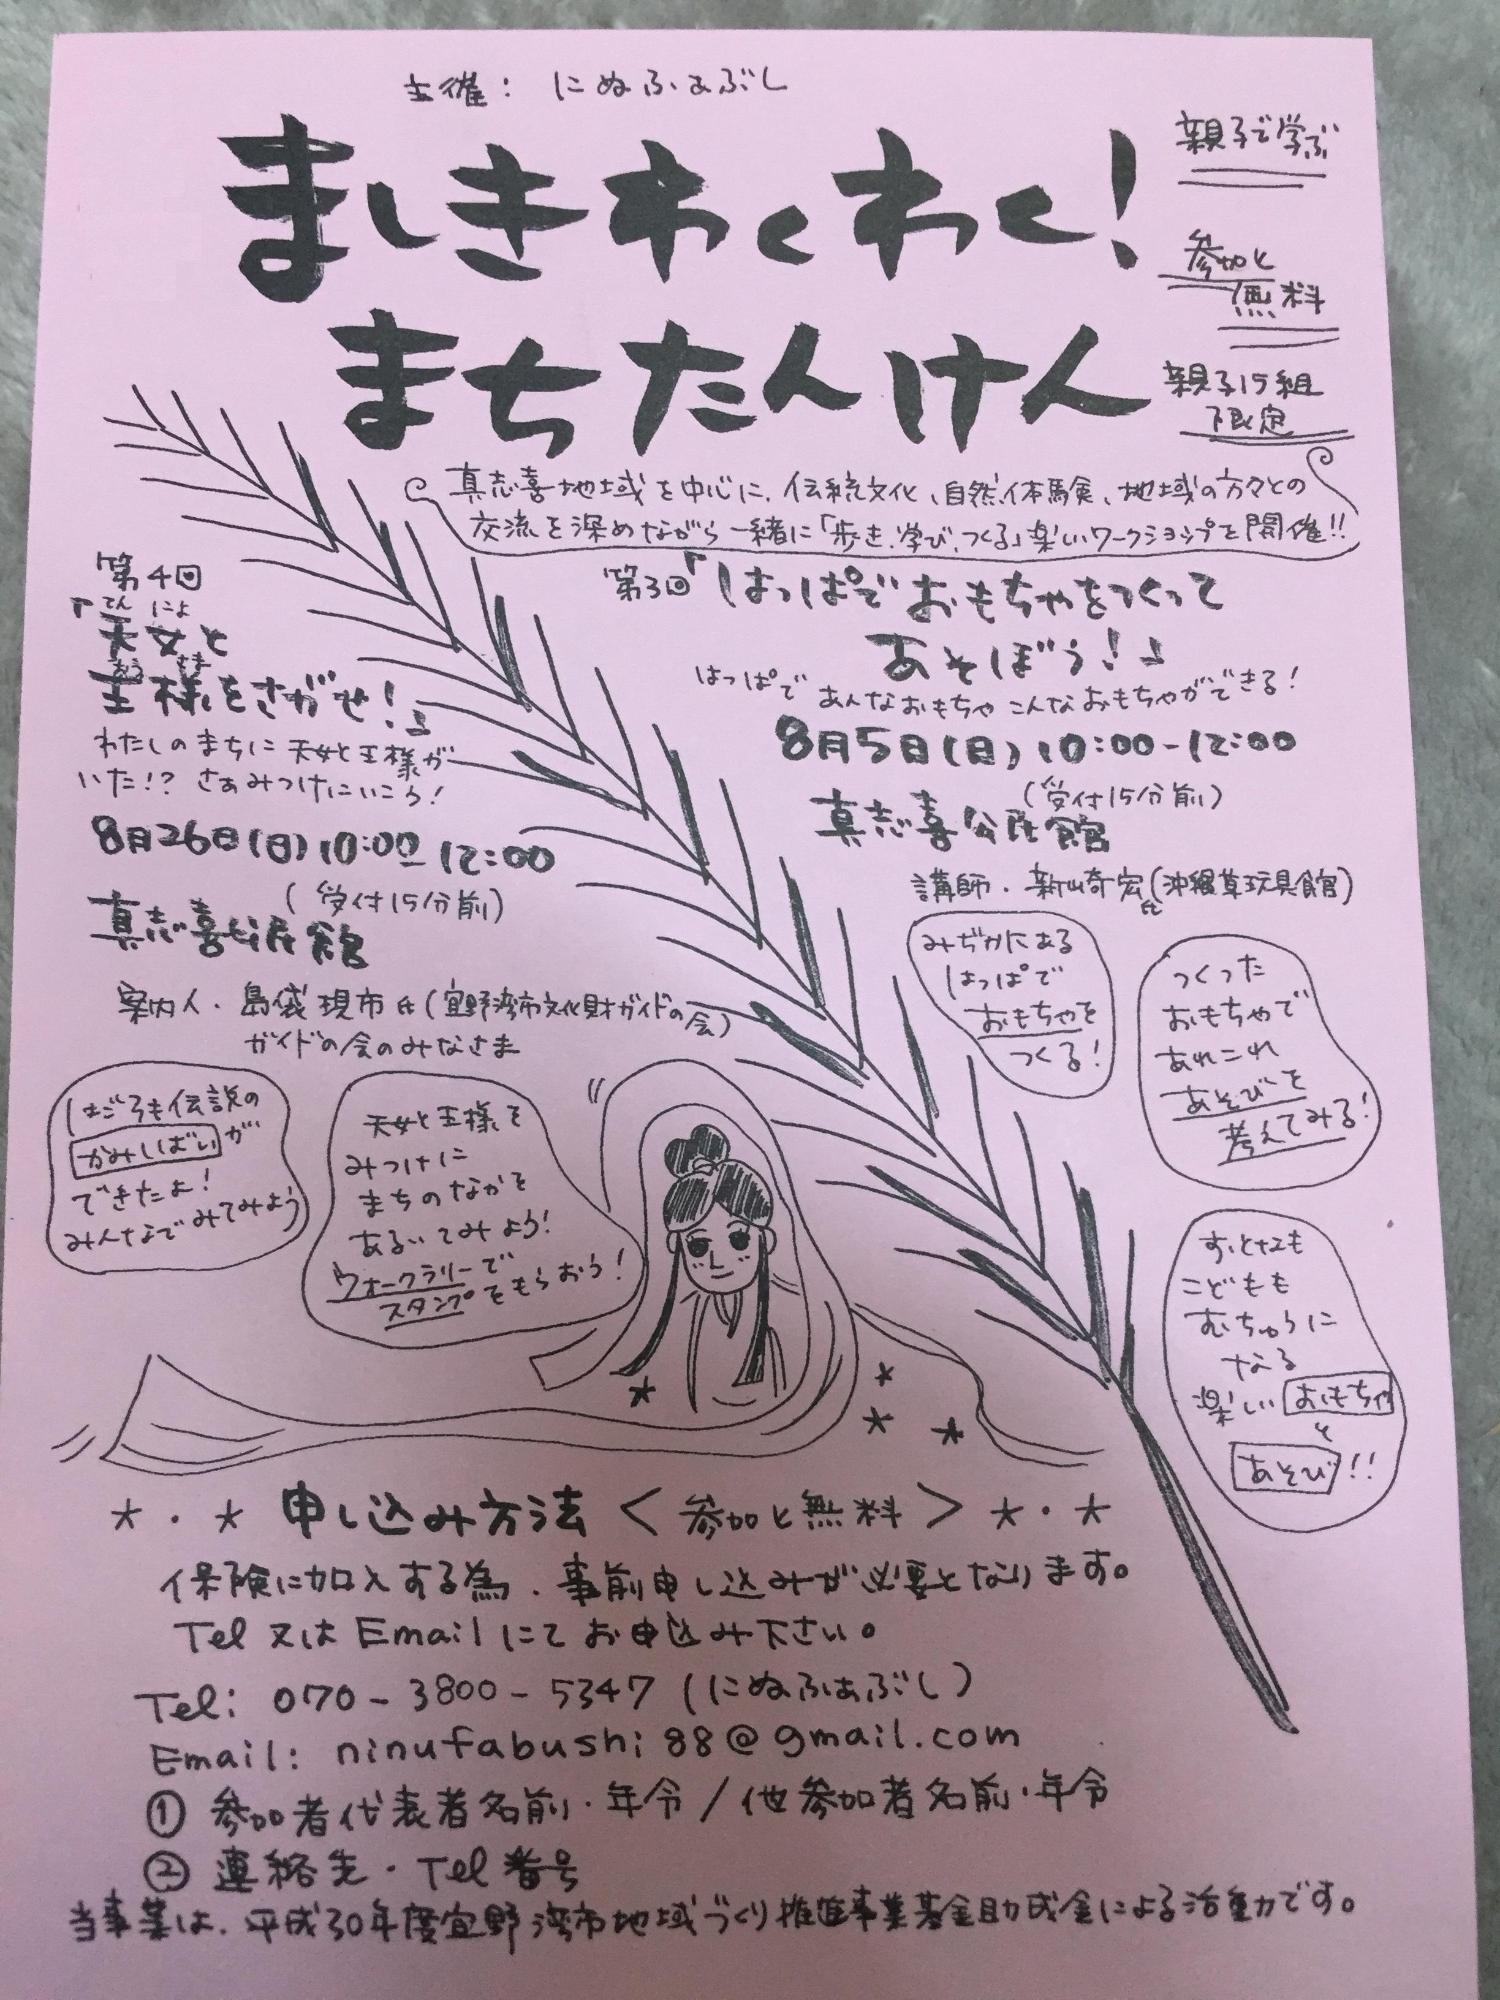 主催: にぬふぁぶし
ましきわくわく!
まちたんけん
親子で学ぶ
参加ヒ
無料
親子15組
限定
真志喜地域を中心に、伝統文化、自然体験、地域の方々との
交流を深めながら一緒に「歩き、学び、つくる」楽しいワークショップを開催!!
第3回「はっぱでおもちゃをつくって
あそぼう!」
はっぱであんなおもちゃこんなおもちゃができる!
8月5日(日)10:00-12:00
(受付15分前)
真志喜公民館
講師・新崎宏氏(沖縄草玩具館)
みぢかにある
はっぱで
おもちゃを
つくる!
つくった
おもちゃで
あれこれ
あそびを
考えてみる!
おとなも
こどもも
むちゅうに
なる
楽しいおもちゃ
と
あそび!!
第4回
てんにょ
「天女と
おうさま
王様をさがせ!」
わたしのまちに天女と王様が
いた!?さあみつけにいこう!
8月26日(日)10:00-12:00
(受付15分前)
真志喜公民館
案内人・島袋現市氏(宜野湾市文化財ガイドの会)
ガイドの会のみなさま
はごろも伝説の
かみしばいが
できたよ!
みんなでみてみよう
天女と王様を
みつけに
まちのなかを
あるいてみよう!
ウォークラリーで
スタンプをもらおう!
★・★ 申し込み方法<参加ヒ無料>★・★
保険に加入する為、事前申し込みが必要となります。
Tel 又は Email にてお申込み下さい。
Tel: 070-3800-5347 (にぬふぁぶし)
Email: ninufabushi88@gmail.com
① 参加者代表者名前・年令/他参加者名前・年令
② 連絡先・Tel番号
当事業は、平成30年度宜野湾市地域づくり推進事業基金助成金による活動です。